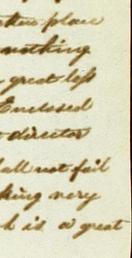 place
nothing
great less
Enclosed
director
shall not fail
king very
h is a great